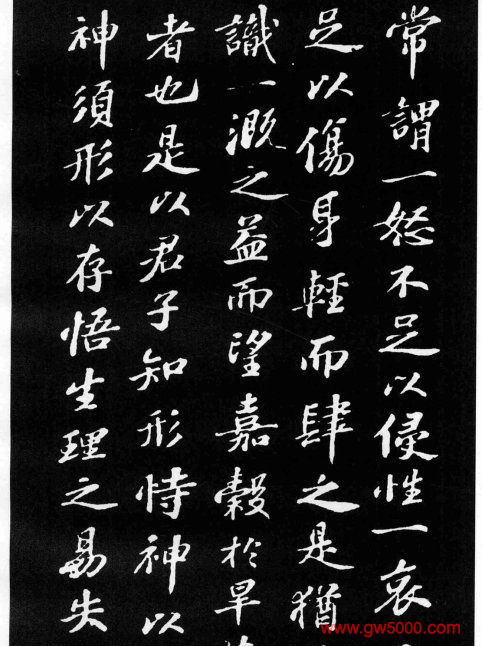 常謂一怒不足以侵性一哀
足以傷身輕而肆之是猶
識一溉之益而望嘉穀於旱
者也是以君子知形恃神以
神須形以存悟生理之易失
www.gw5000.com